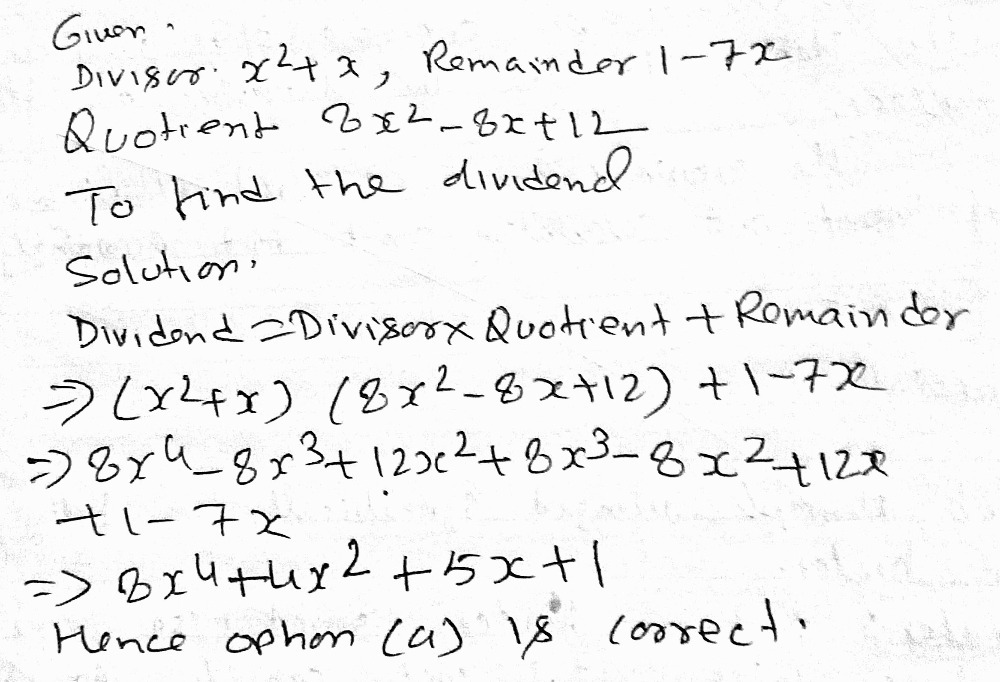 Given.
Divisor. x²+x, Remainder 1-7x
Quotient 8x²-8x+12
To find the dividend
Solution.
Dividend = Divisor x Quotient + Remainder
⇒ (x²+x) (8x²-8x+12) +1-7x
⇒ 8x⁴-8x³+12x²+8x³-8x²+12x
+1-7x
=> 8x⁴+4x²+5x+1
Hence option (a) is correct.